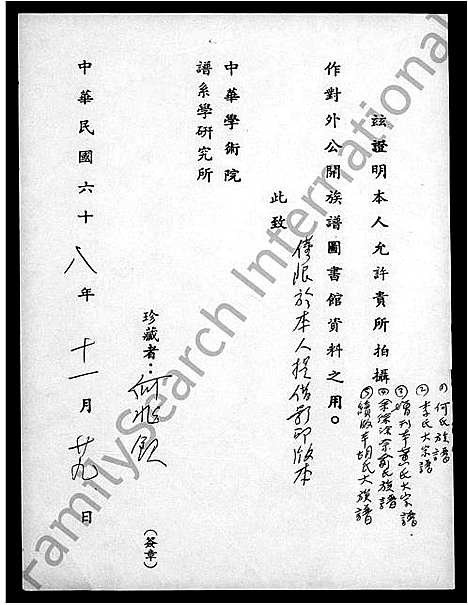 茲證明本人允許貴所拍攝
①何氏族譜
②李氏大宗譜
③增刊本黃氏大宗譜
④余徐涂佘俞氏族譜
⑤續版本胡氏大族譜
作對外公開族譜圖書館資料之用。
僅限於本人提借影印版本
此致
中華學術院
譜系學研究所
珍藏者：何兆欽
(簽章)
中華民國六十八年十一月廿九日
FamilySearch International